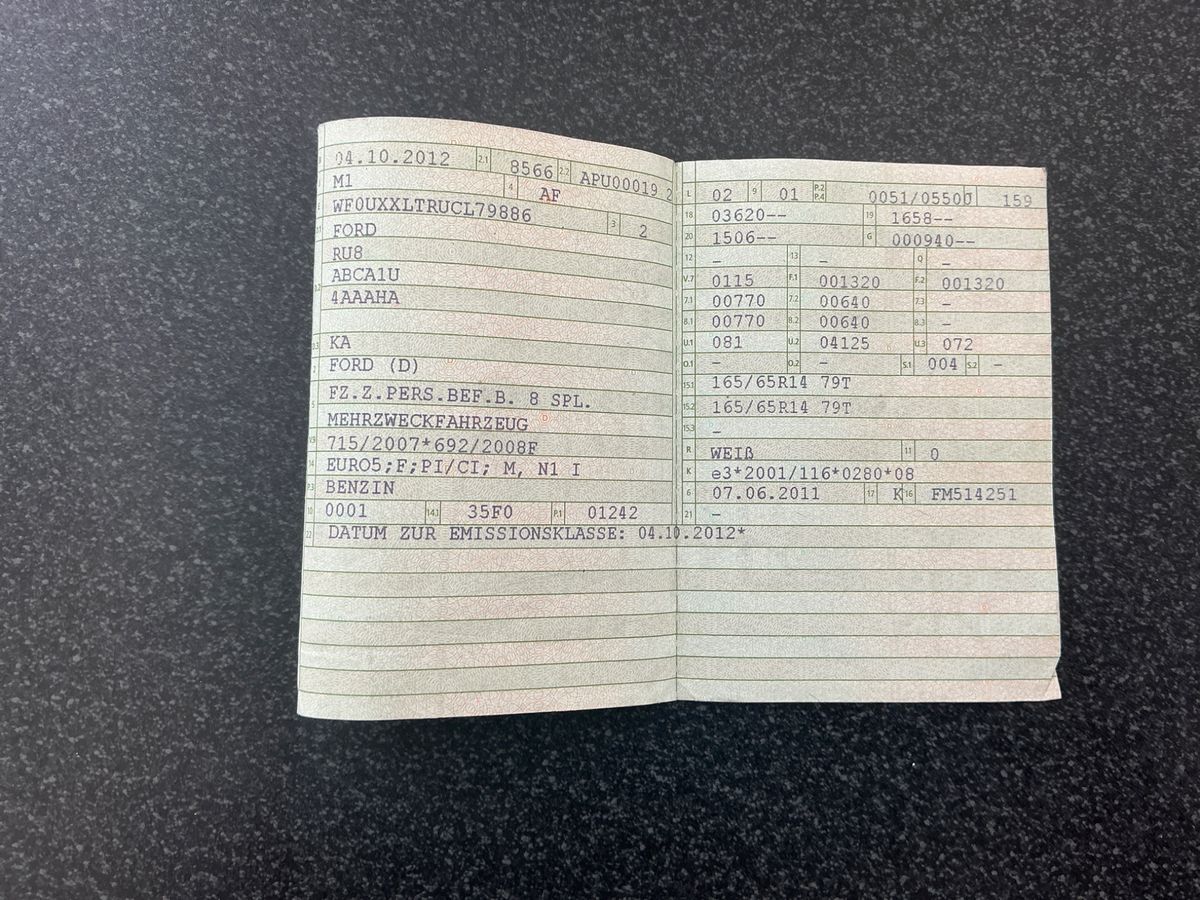 04.10.2012 2.1 8566 2.2 APU00019 2
M1 4 AF
WF0UXXLTRUCL79886 3 2
FORD
RU8
ABCA1U
4AAAHA
KA
FORD (D)
FZ.Z.PERS.BEF.B. 8 SPL.
MEHRZWECKFAHRZEUG
715/2007*692/2008F
14 EURO5;F;PI/CI; M, N1 I
BENZIN
10 0001 14.1 35F0 P.1 01242
22 DATUM ZUR EMISSIONSKLASSE: 04.10.2012*
L 02 9 01 P.2 P.4 0051/05500 159
18 03620-- 19 1658--
20 1506-- G 000940--
12 - 13 - Q -
V.7 0115 F.1 001320 F.2 001320
7.1 00770 7.2 00640 7.3 -
8.1 00770 8.2 00640 8.3 -
U.1 081 U.2 04125 U.3 072
O.1 - O.2 - S.1 004 S.2 -
15.1 165/65R14 79T
15.2 165/65R14 79T
15.3 -
R WEIß 11 0
K e3*2001/116*0280*08
6 07.06.2011 17 K 16 FM514251
21 -